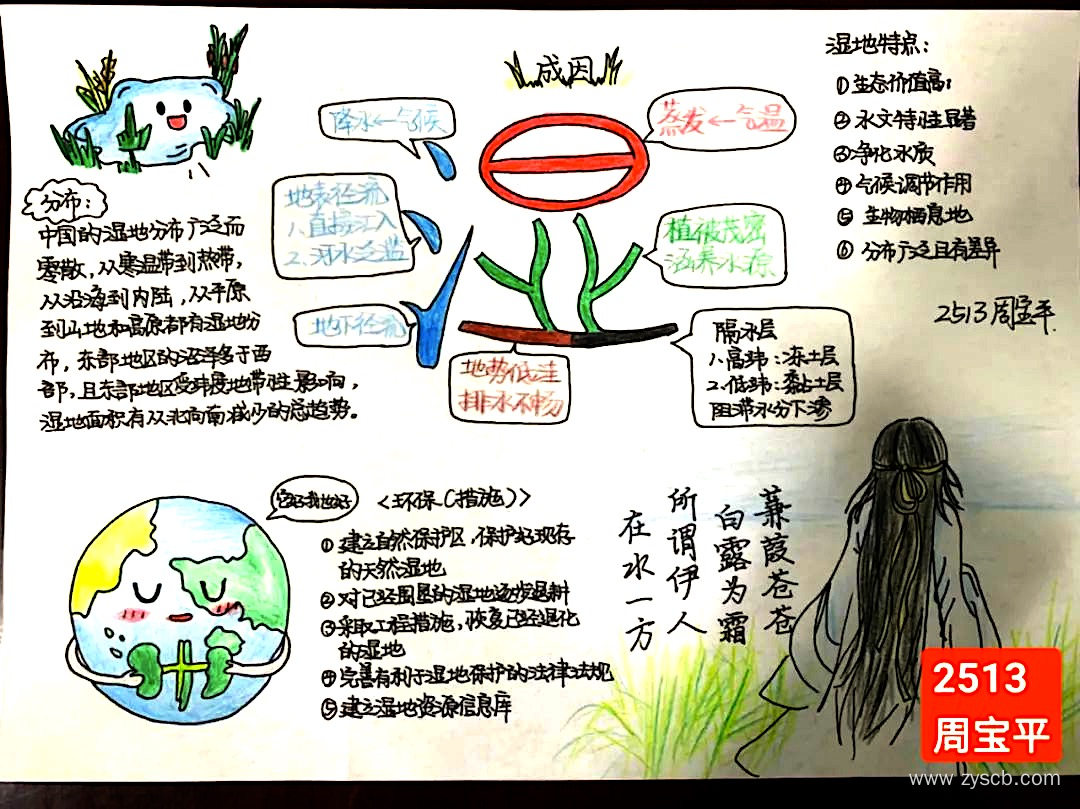 分布:
中国的湿地分布广泛而
零散,从寒温带到热带,
从沿海到内陆,从平原
到山地和高原都有湿地分
布,东部地区的沼泽多于西
部,且东部地区受纬度地带性影响,
湿地面积有从北向南减少的总趋势。
成因
降水←气候
地表径流
1.直接汇入
2.河水泛滥
地下径流
蒸发←气温
植被茂密
涵养水源
地势低洼
排水不畅
隔水层
1.高纬:冻土层
2.低纬:黏土层
阻滞水分下渗
湿地特点:
①生态价值高;
②水文特性显著
③净化水质
④气候调节作用
⑤生物栖息地
⑥分布广泛且有差异
2513周宝平.
你好我也好
<环保(措施)>
①建立自然保护区,保护好现存
的天然湿地
②对已经围垦的湿地逐步退耕
③采取工程措施,恢复已经退化
的湿地
④完善有利于湿地保护的法律法规
⑤建立湿地资源信息库
蒹葭苍苍
白露为霜
所谓伊人
在水一方
2513
周宝平
www.zyscb.com